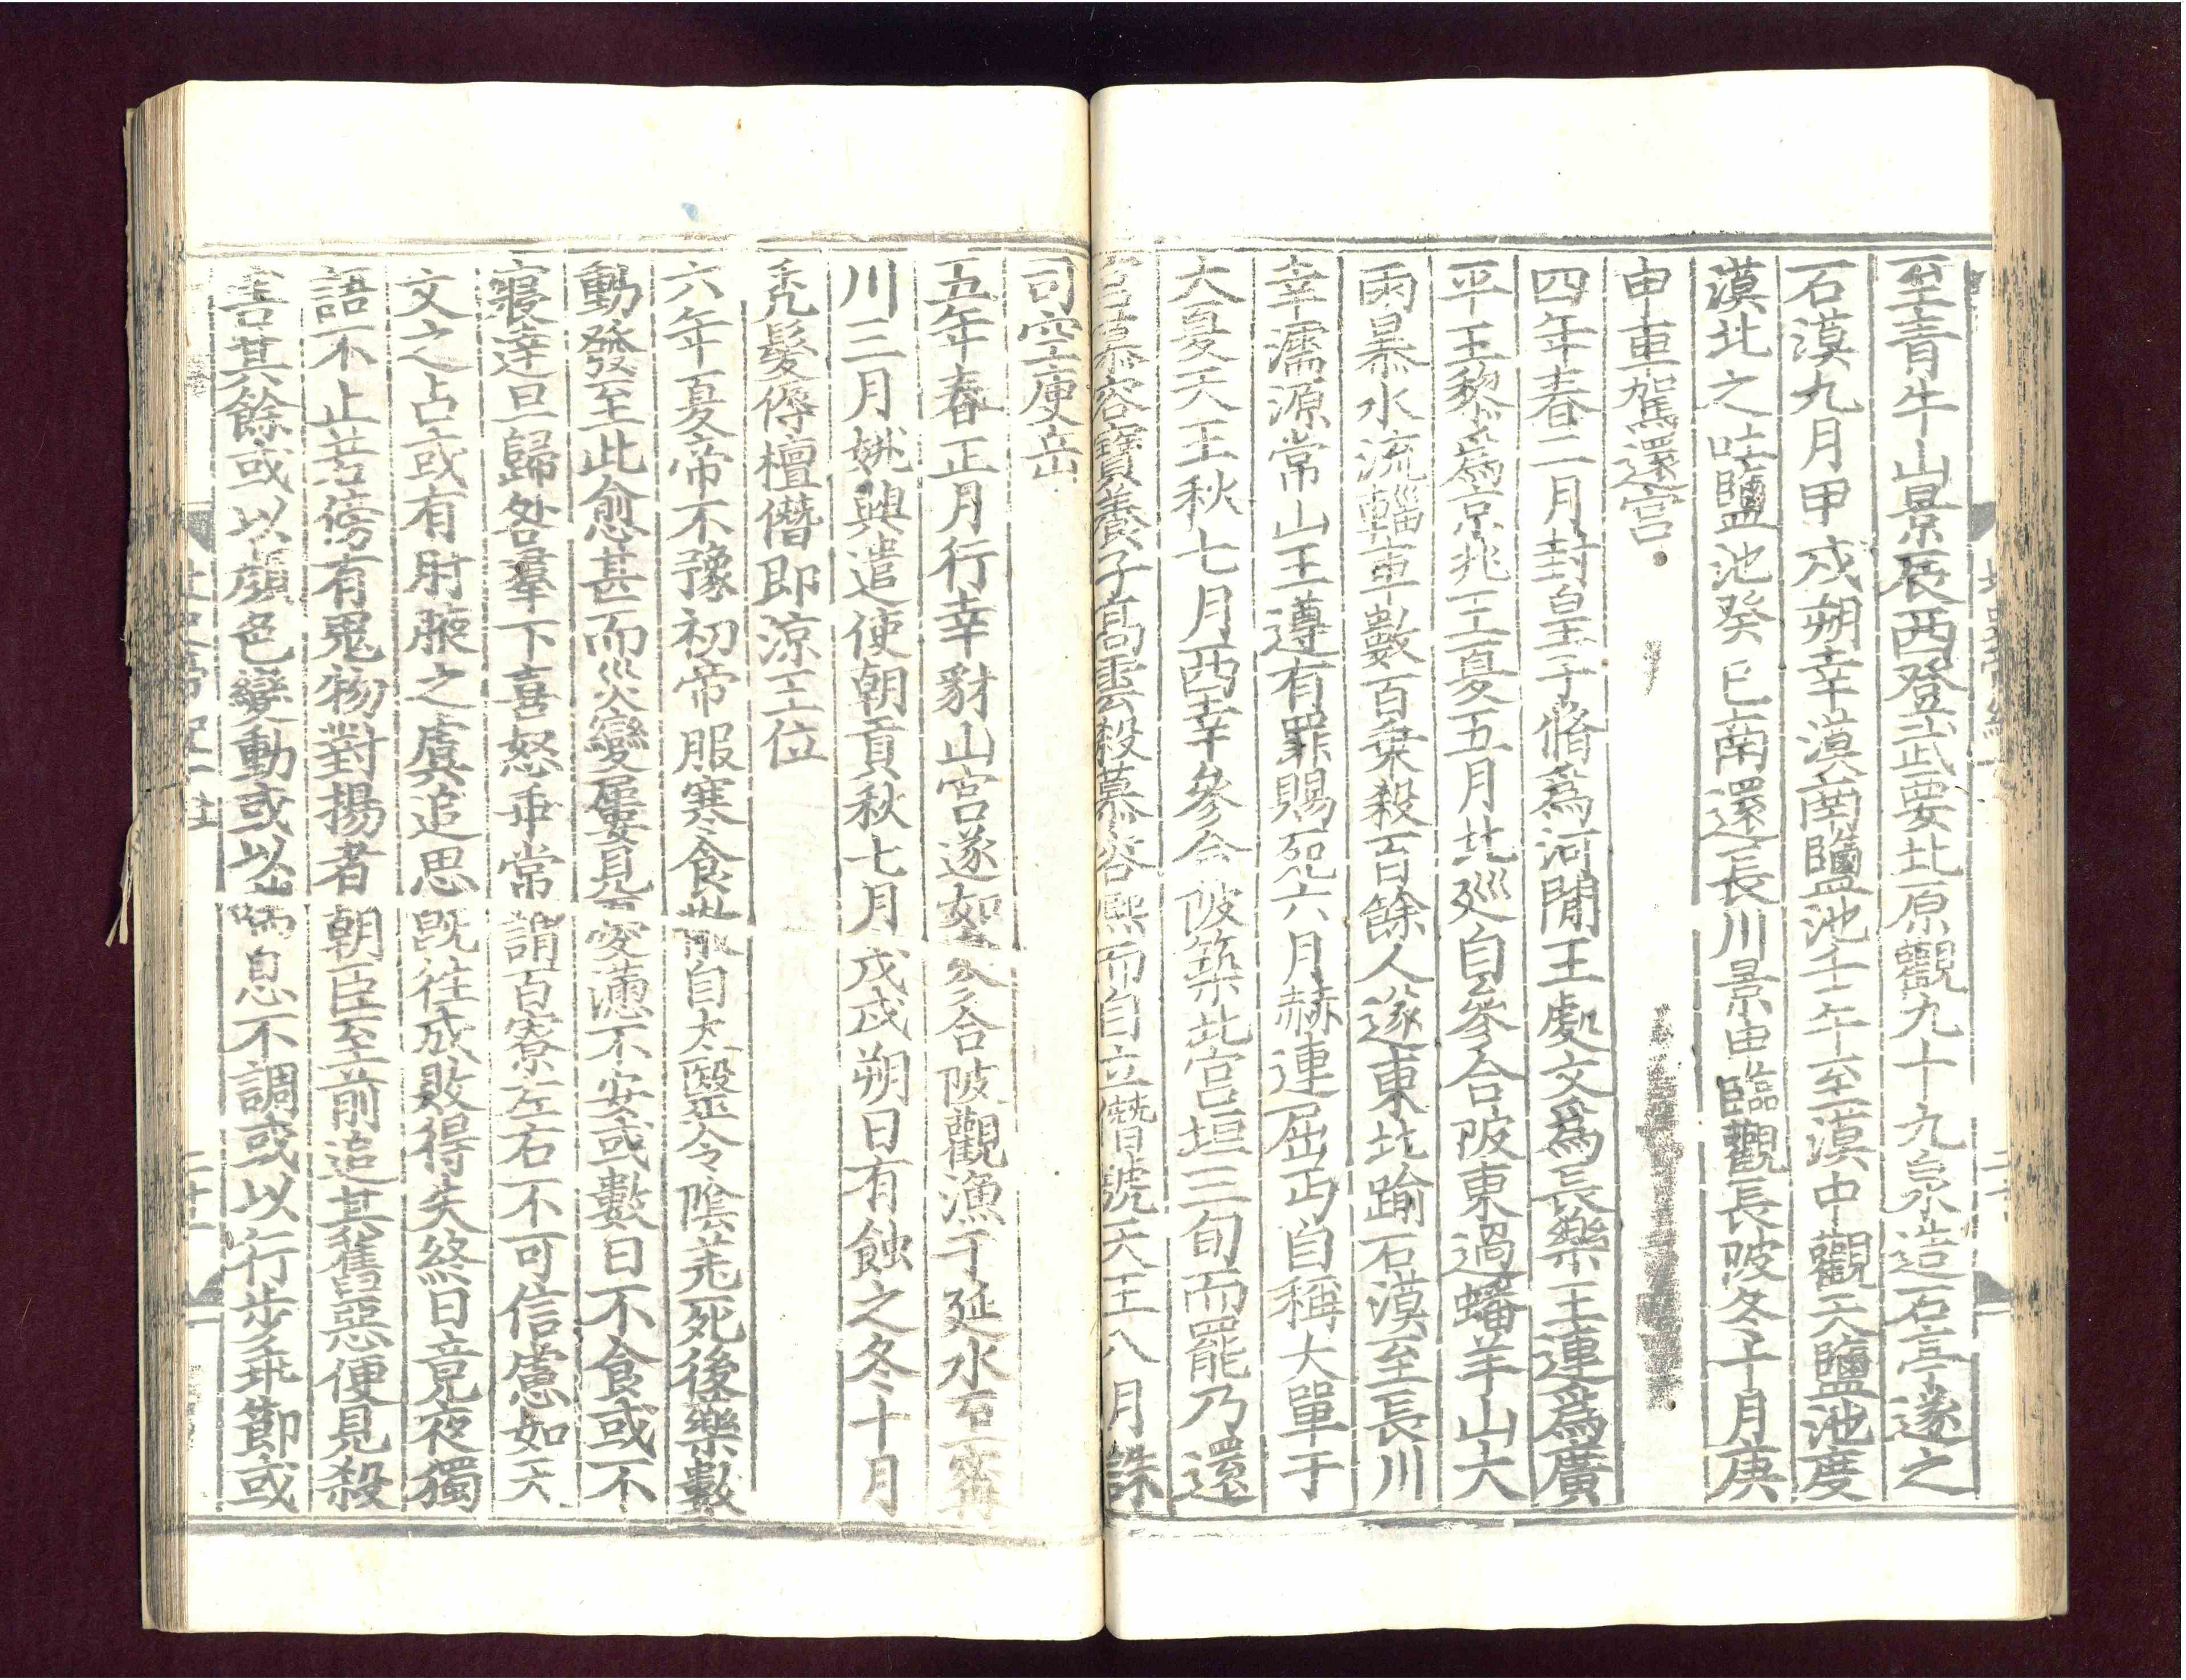 至青牛山景辰西登武要北原觀九十九泉造石亭遂之
石漠九月甲戌朔幸漠南鹽池壬午至漠中觀天鹽池度
漠北之吐鹽池癸巳南還長川景申臨觀長陂冬十月庚
申車駕還宮
四年春二月封皇子脩爲河閒王處文爲長樂王連爲廣
平王黎爲京兆王夏五月北廵自參合陂東過蟠羊山大
雨暴水流輜車數百乗殺百餘人遂東北踰石漠至長川
幸濡源常山王遵有罪賜死六月赫連屈丐自稱大單于
大夏天王秋七月西幸參合陂築北宮垣三旬而罷乃還
宮慕容寶養子髙雲殺慕容熈而自立僣號天王八月誅
司空庾岳
五年春正月行幸豺山宮遂如參合陂觀漁于延水至寗
川三月姚興遣使朝貢秋七月戊戌朔日有蝕之冬十月
禿髮傉檀僭即涼王位
六年夏帝不豫初帝服寒食散自太醫令陰羌死後藥數
動發至此愈甚而災變屢見憂懣不安或數日不食或不
寢達旦歸咎羣下喜怒乖常謂百寮左右不可信慮如天
文之占或有肘腋之虞追思旣往成敗得失終日竟夜獨
語不止若傍有鬼物對揚者朝臣至前追其舊惡便見殺
害其餘或以顔色變動或以喘息不調或以行步乖節或